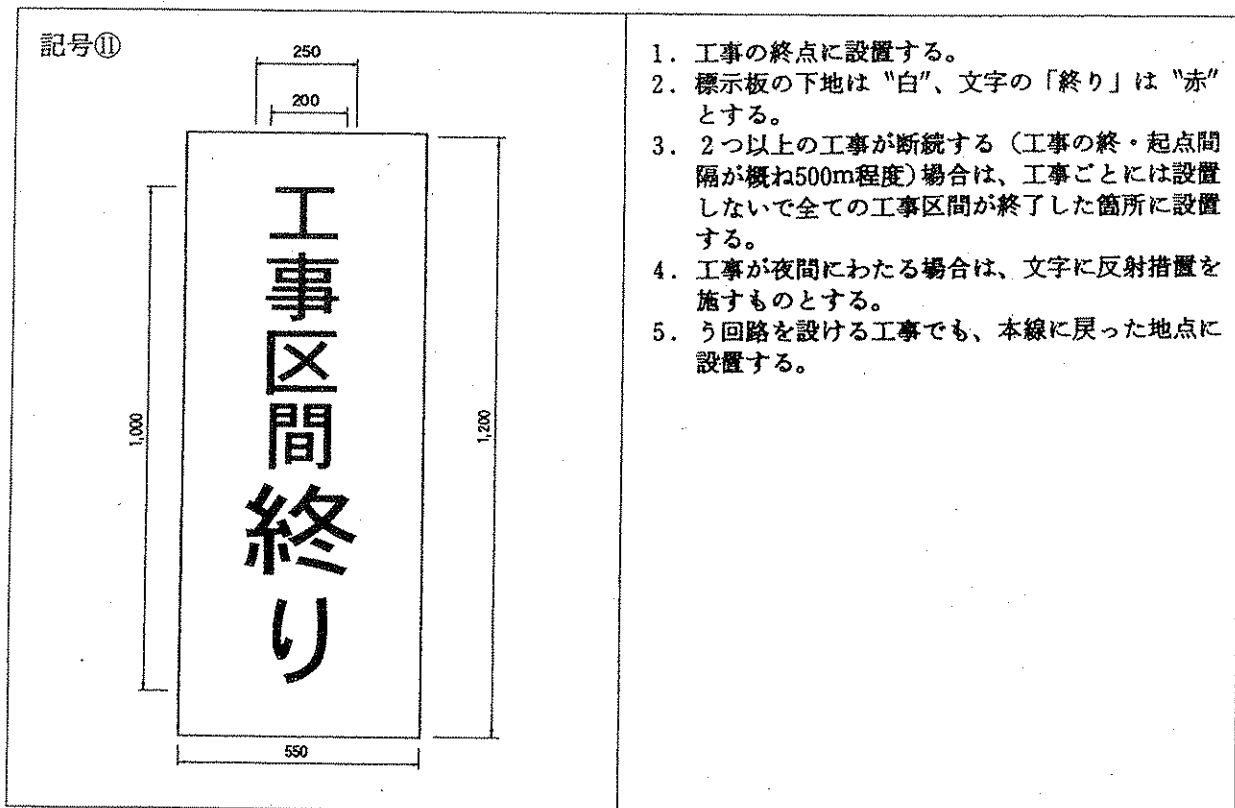 記号⑪
250
200
工事区間終り
1,000
1,200
550
1. 工事の終点に設置する。
2. 標示板の下地は〝白〞、文字の「終り」は〝赤〞
とする。
3. 2つ以上の工事が断続する(工事の終・起点間
隔が概ね500m程度)場合は、工事ごとには設置
しないで全ての工事区間が終了した箇所に設置
する。
4. 工事が夜間にわたる場合は、文字に反射措置を
施すものとする。
5. う回路を設ける工事でも、本線に戻った地点に
設置する。